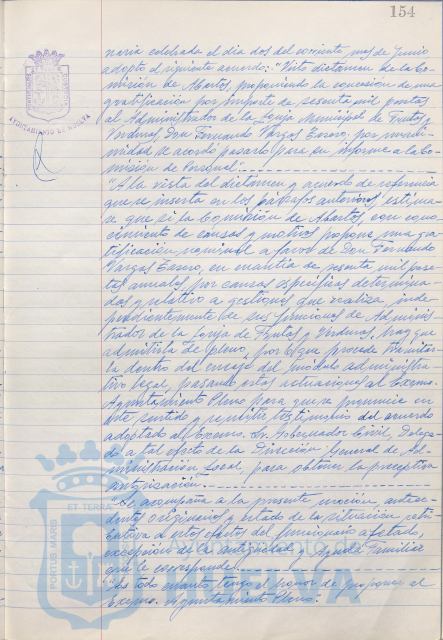 154
naria celebrada el día dos del corriente mes de Junio
adoptó el siguiente acuerdo: "Visto dictamen de la Co-
misión de Abastos, proponiendo la concesión de una
gratificación por importe de sesenta mil pesetas
al Administrador de la Lonja Municipal de Frutas y
Verduras Don Fernando Vargas, por unani-
midad se acordó pasarlo para su informe a la Co-
misión de Personal".
AYUNTAMIENTO DE HUELVA
"A la vista del dictamen y acuerdo de referencia
que se inserta en los párrafos anteriores estima-
se que si la Comisión de Abastos, con cono-
cimiento de causas y motivos propone una gra-
tificación a favor de Don Fernando
Vargas, en cuantía de sesenta mil pese-
tas anuales, por causas específicas determina-
das y relativo a gestiones que realiza, inde-
pendientemente de sus funciones de Adminis-
trador de la Lonja de Frutas y Verduras, hay que
admitirla de pleno, por lo que procede tramitar-
la dentro del encaje del módulo administra-
tivo legal, pasando estas actuaciones al Excmo.
Ayuntamiento Pleno para que se pronuncie en
este sentido y remitir testimonio del acuerdo
adoptado al Excmo. Sr. Gobernador Civil, Delega-
do a tal efecto de la Dirección General de Ad-
ministración Local, para obtener la preceptiva
autorización".
"Se acompaña a la presente moción antece-
dentes originarios y estado de la situación retri-
butiva a estos efectos del funcionario afectado,
excepción de la antigüedad y Ayuda Familiar
que le corresponde.
"Es todo cuanto tengo el honor de proponer al
Excmo. Ayuntamiento Pleno".
PORTUS MARIS ET TERRAE
HUELVA